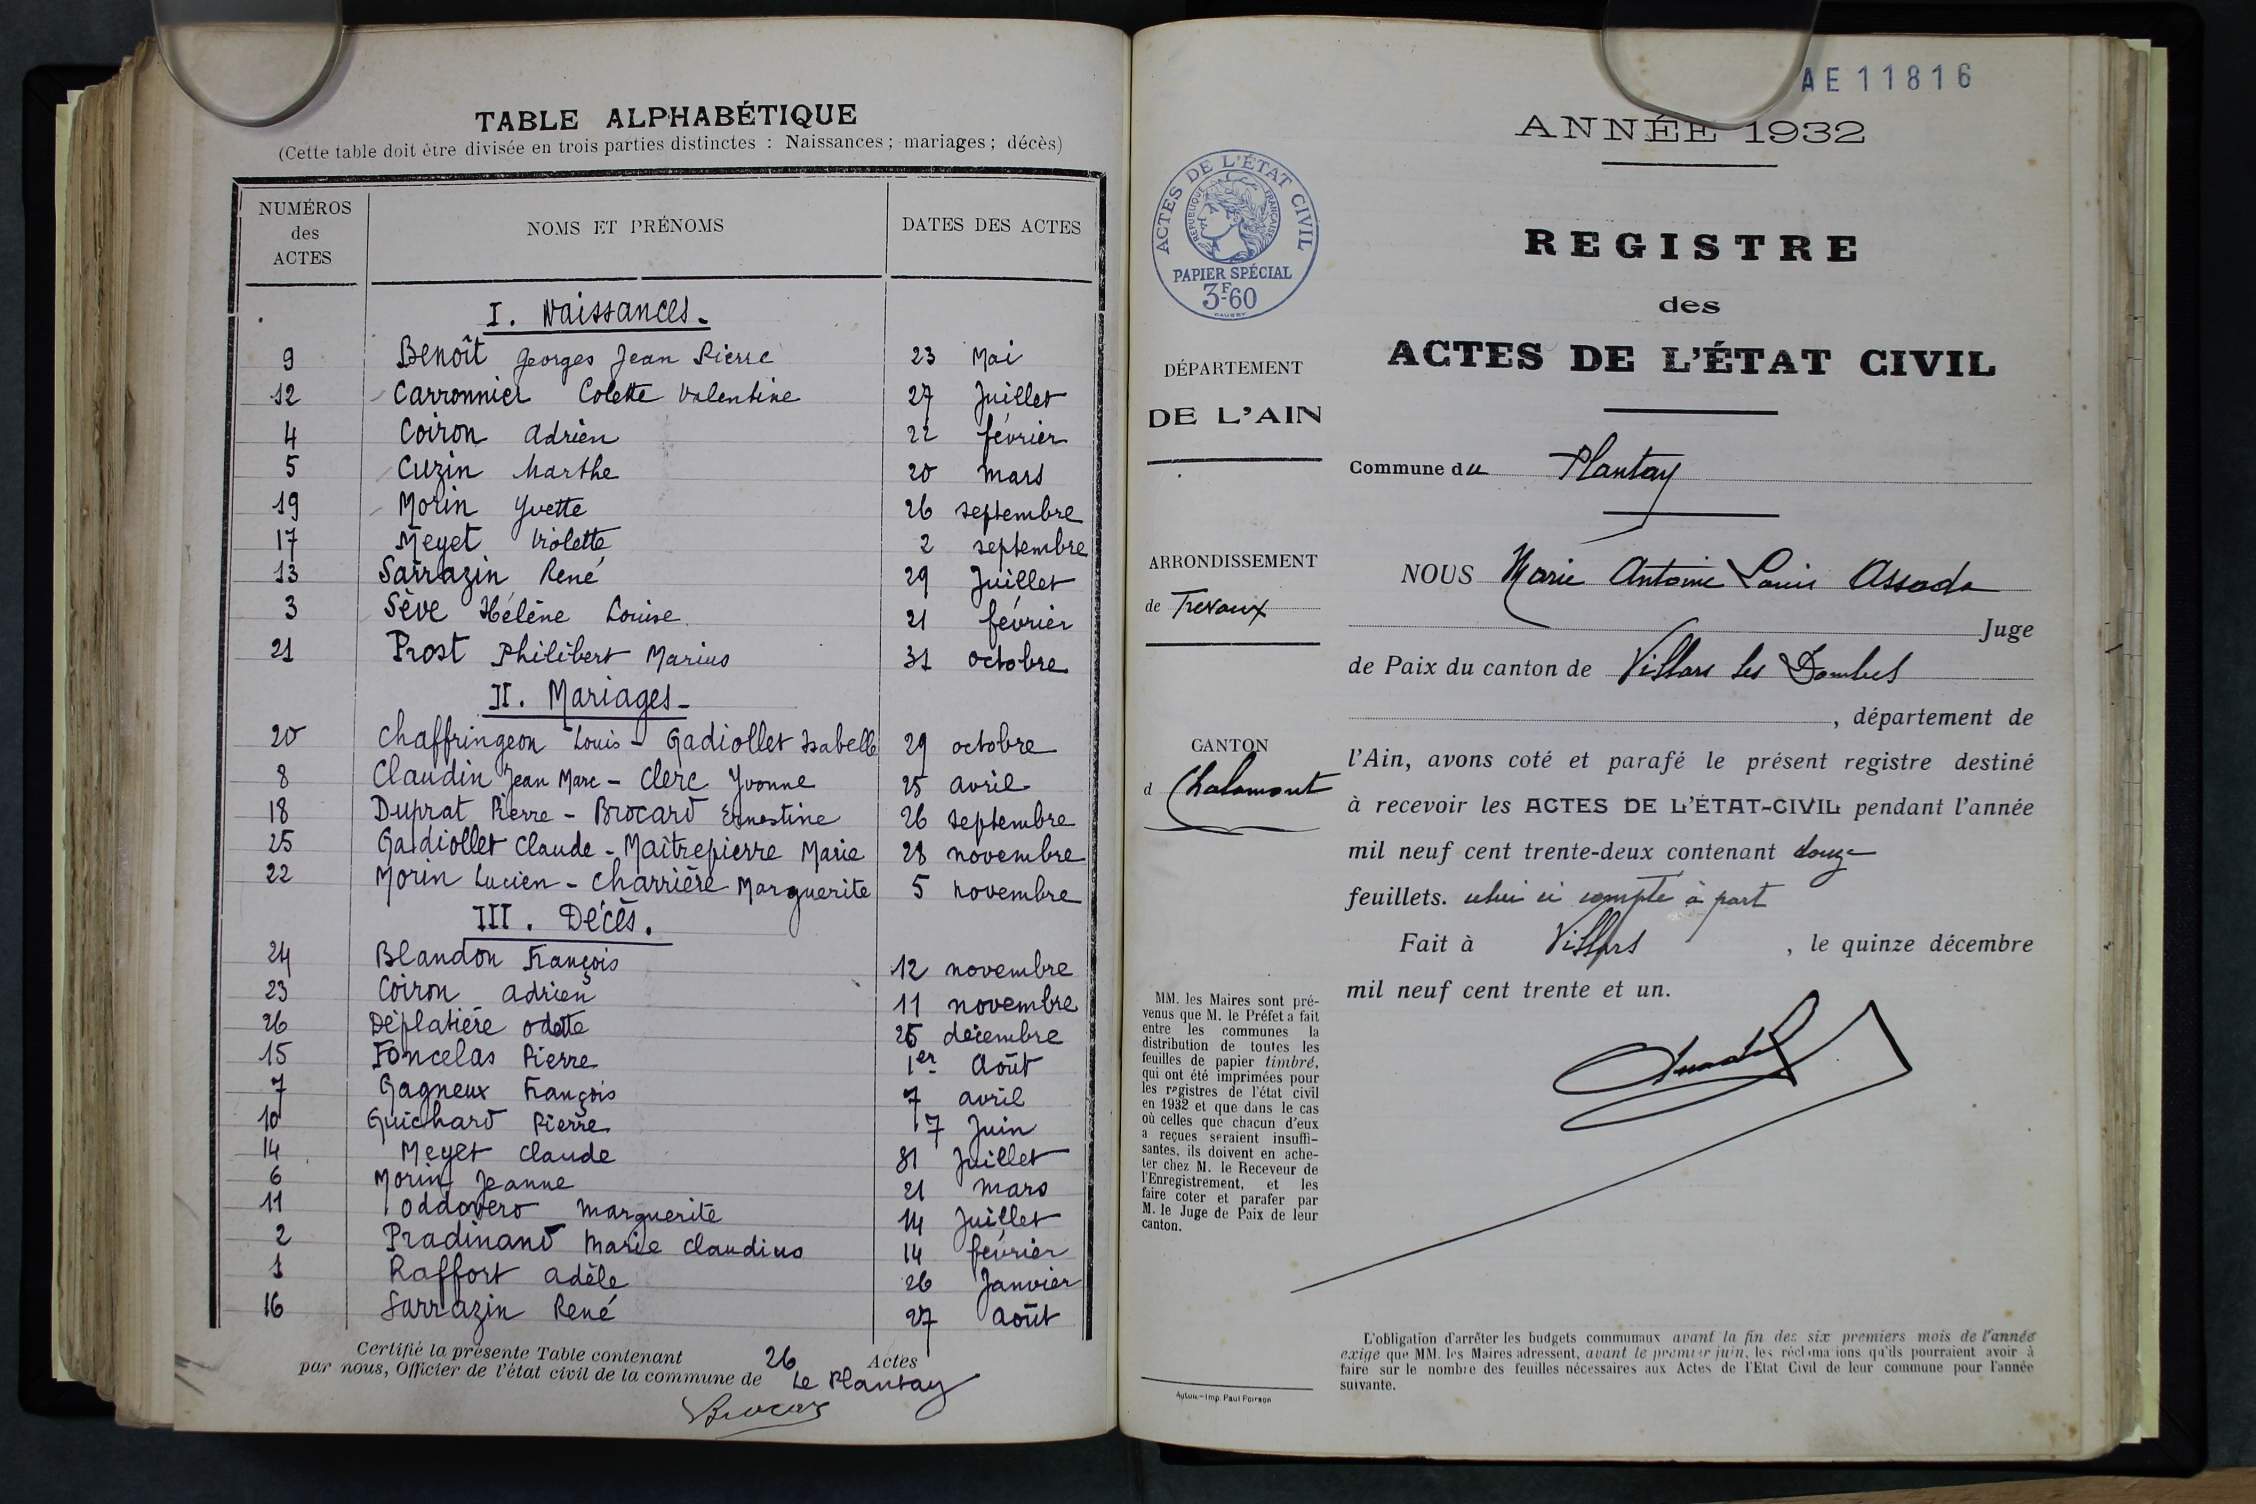 TABLE ALPHABÉTIQUE
(Cette table doit être divisée en trois parties distinctes : Naissances ; mariages ; décès)
NUMÉROS des ACTES NOMS ET PRÉNOMS DATES DES ACTES
I. Naissances.
9 Benoît Georges Jean Pierre 23 Mai
12 Carronnier Colette Valentine 27 Juillet
4 Coiron Adrien 22 février
5 Cuzin Marthe 20 mars
19 Morin Yvette 26 septembre
17 Meyet Violette 2 septembre
13 Sarrazin René 29 Juillet
3 Sève Hélène Louise 21 février
21 Prost Philibert Marius 31 octobre
II. Mariages
20 Chaffringeon Louis - Gadiollet Isabelle 29 octobre
8 Claudin Jean Marc - Clerc Yvonne 25 avril
18 Duprat Pierre - Brocard Ernestine 26 septembre
25 Gadiollet Claude - Maîtrepierre Marie 28 novembre
22 Morin Lucien - Charrière Marguerite 5 novembre
III. Décès.
24 Blandon François 12 novembre
23 Coiron Adrien 11 novembre
26 Déplatière Odette 25 décembre
15 Foncelas Pierre 1er Août
7 Gagneux François 7 avril
10 Guichard Pierre 17 Juin
14 Meyet Claude 31 Juillet
6 Morin Jeanne 21 mars
11 Oddovero Marguerite 14 Juillet
2 Pradinand Marie Claudius 14 février
1 Raffort Adèle 26 Janvier
16 Sarrazin René 27 août
Certifié la présente Table contenant 26 Actes
par nous, Officier de l'état civil de la commune de Le Plantay
Brocard
AE11816
ANNÉE 1932
ACTES DE L'ÉTAT CIVIL
RÉPUBLIQUE FRANÇAISE
PAPIER SPÉCIAL
3F-60
REGISTRE
des
ACTES DE L'ÉTAT CIVIL
DÉPARTEMENT
DE L'AIN
ARRONDISSEMENT
de Trévoux
CANTON
d Chalamont
MM. les Maires sont pré-
venus que M. le Préfet a fait
entre les communes la
distribution de toutes les
feuilles de papier timbré,
qui ont été imprimées pour
les registres de l'état civil
en 1932 et que dans le cas
où celles que chacun d'eux
a reçues seraient insuffi-
santes, ils doivent en ache-
ter chez M. le Receveur de
l'Enregistrement, et les
faire coter et parafer par
M. le Juge de Paix de leur
canton.
Autun.-Imp. Paul Poirson
Commune du Plantay
NOUS Marie Antoine Louis Assada
Juge
de Paix du canton de Villars les Dombes
, département de
l'Ain, avons coté et parafé le présent registre destiné
à recevoir les ACTES DE L'ÉTAT-CIVIL pendant l'année
mil neuf cent trente-deux contenant douze
feuillets. celui ci compté à part
Fait à Villars , le quinze décembre
mil neuf cent trente et un.
L'obligation d'arrêter les budgets communaux avant la fin des six premiers mois de l'année
exige que MM. les Maires adressent, avant le premier juin, les réclamations qu'ils pourraient avoir à
faire sur le nombre des feuilles nécessaires aux Actes de l'Etat Civil de leur commune pour l'année
suivante.